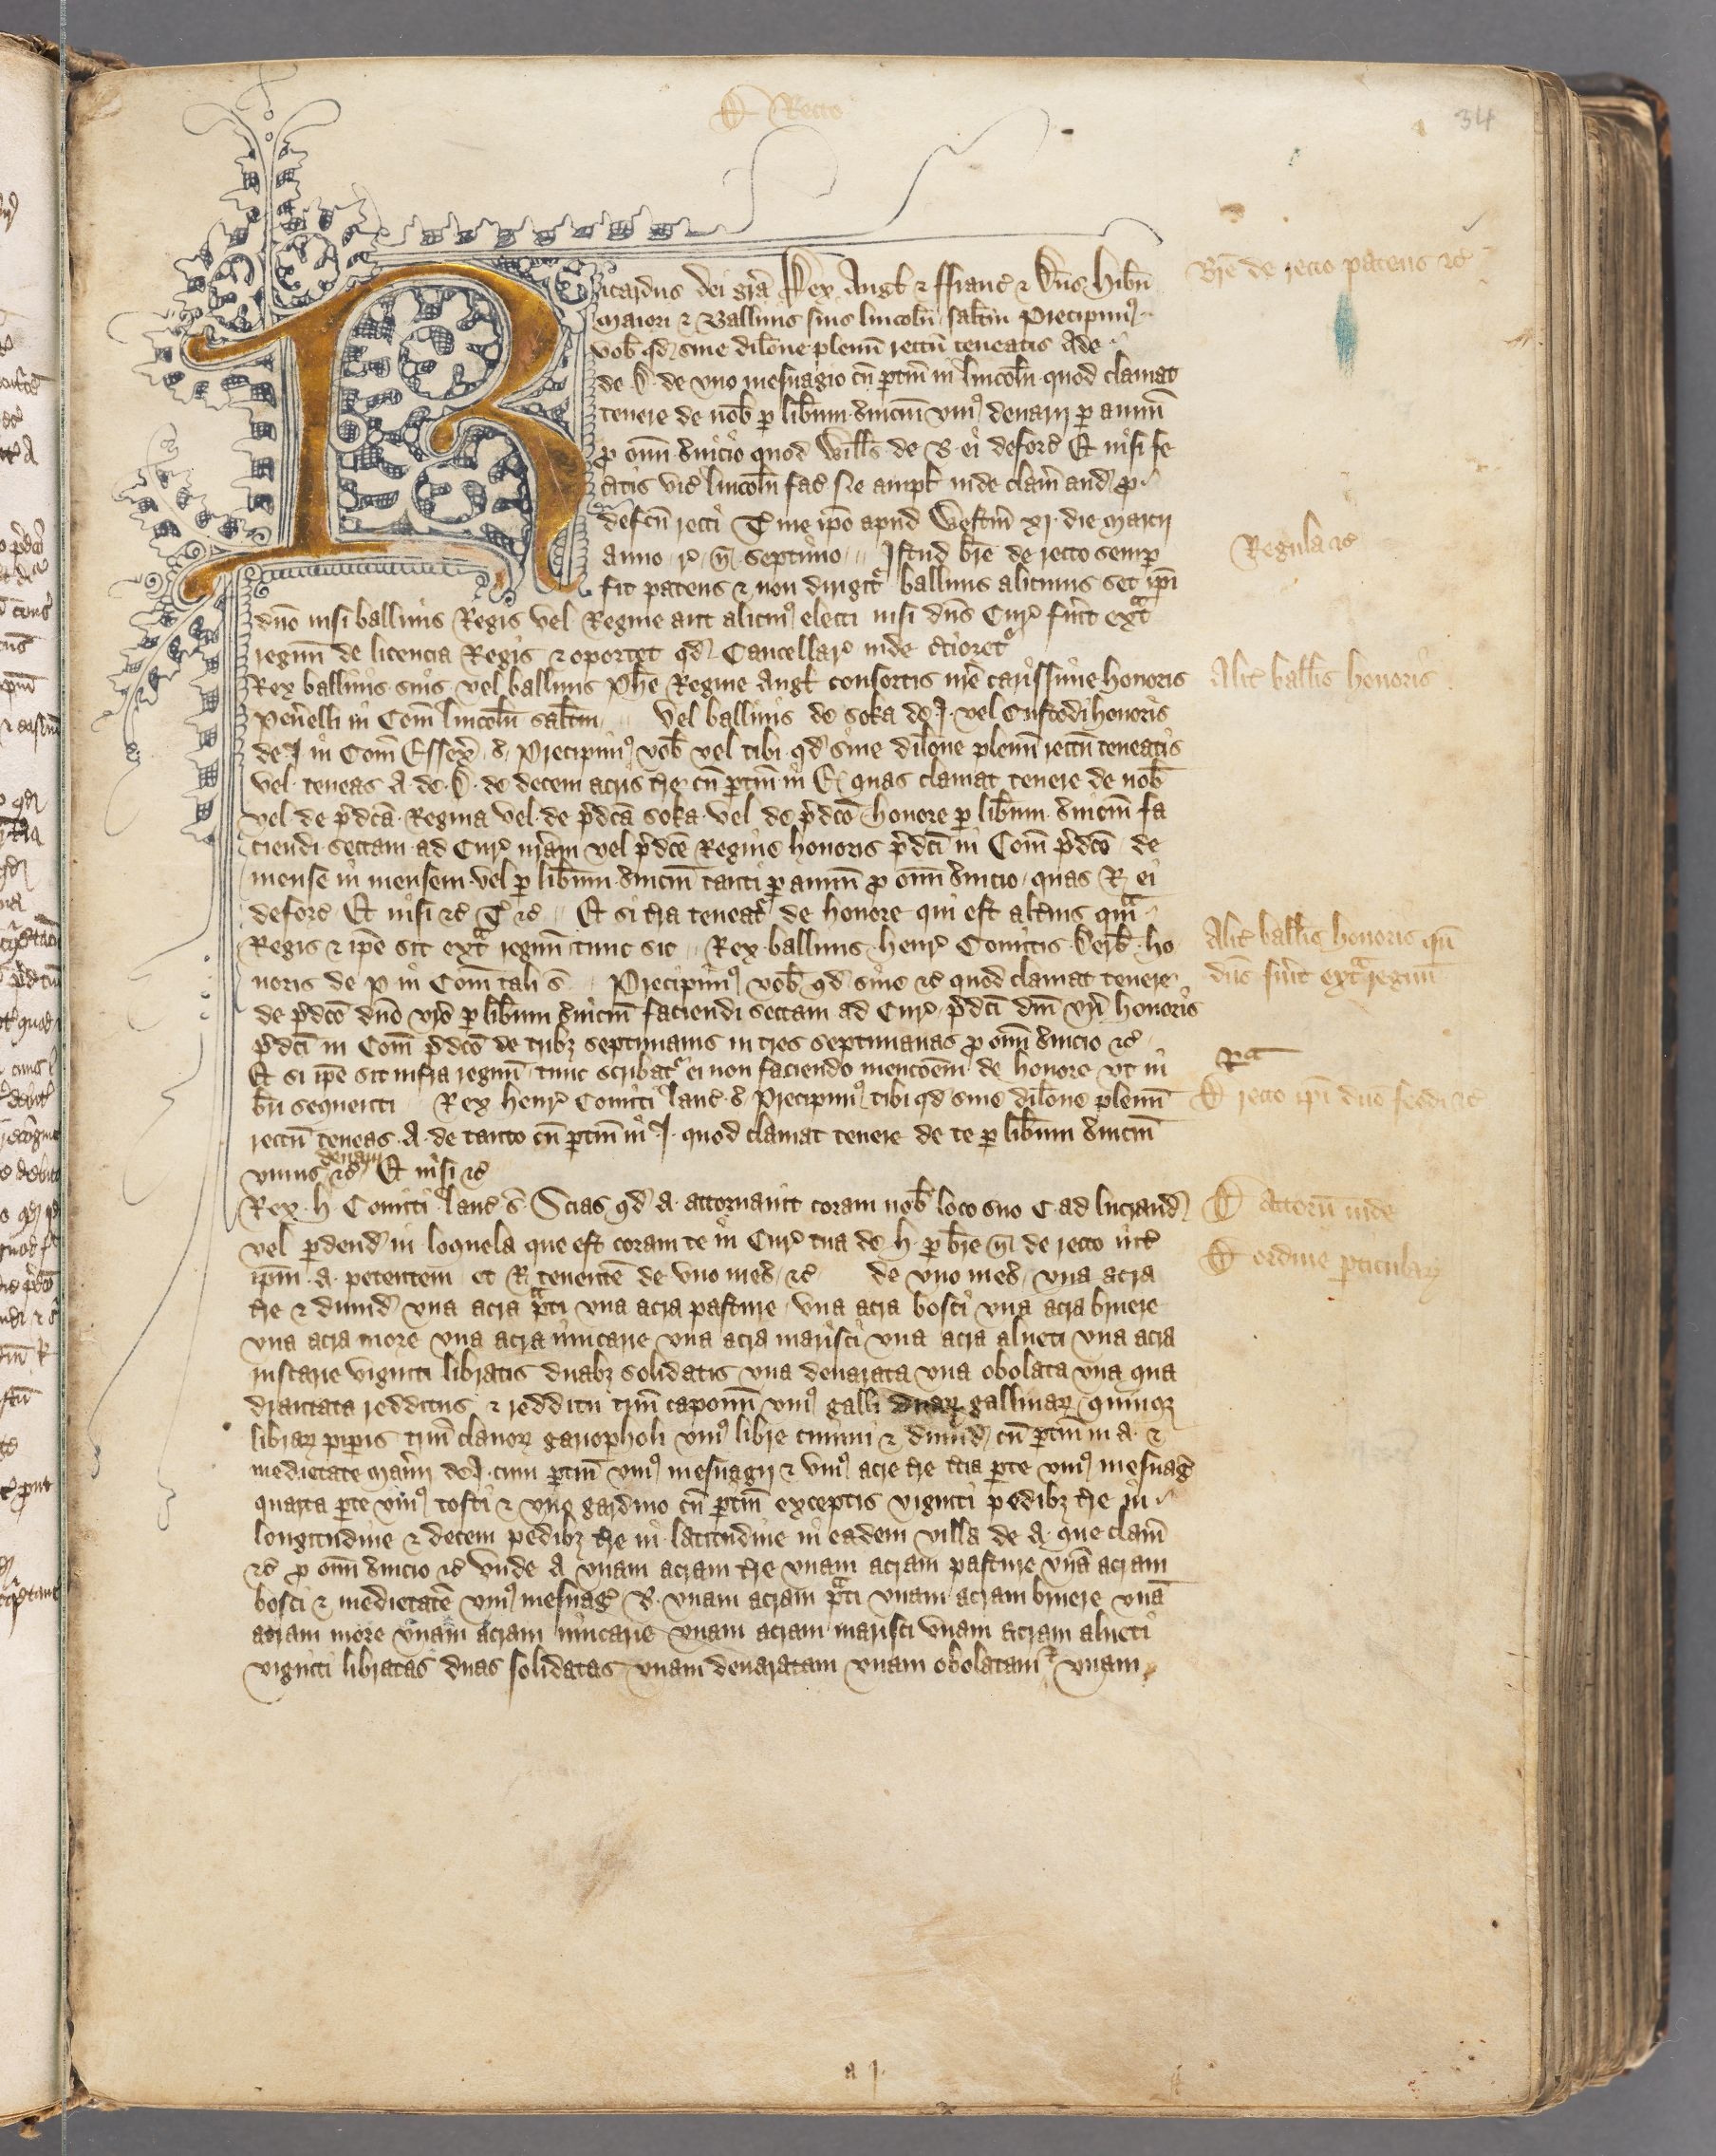 D Recto
34
Ricardus dei grã Rex Angł ⁊ ffranc̃ ⁊ Dñs hibñ
Maiori ⁊ Ballivis suis lincolñ sałtm Precipimꝰ
vob̃ qđ sine dilõne plenũ rectũ teneatis A de
de D. de uno mesuagio cũ ptiñ in lincolñ quod clamat
tenere de nob̃ p lib̃um s̃viciũ uniꝰ denarij p annũ
p om̃i s̃vicio quod Wills̃ de B. ei deforc̃ Et nisi fe
c̃itis vic̃ lincolñ fac̃ ne ampł inde clam̃ aud̃ p
defc̃ũ recti T me ip̃o apud Westm̃ xj. die Marcij
Anno r̃ ñ septimo Istud br̃e de recto semp
sit patens ⁊ non dirigit̃ ballivis alicuius set ip̃i
dño nisi ballivis Regis vel Regine aut alicuiꝰ electi nisi dñs Cur̃ fũit ext̃
regnũ de licencia Regis ⁊ oportet qđ Cancellar̃ inde c̃tioret̃
Rex ballivis suis vel ballivis Phẽ Regine Angł consortis nr̃e carissime honoris
Pev̾elli in Com̃ lincolñ sałtm vel ballivis de soka de J. vel Custodi honoris
de J in Com̃ Essex̃ s̃. Precipimꝰ vob̃ vel tibi qđ sine dilõne plenũ rectũ teneatis
vel teneas A. de. D. de decem acris t̃re cũ ptiñ in E quas clamat tenere de nob̃
vel de p̃dc̃a Regina vel de p̃dc̃a soka vel de p̃dc̃o honore p lib̃um s̃viciũ fa
ciendi sectam ad Cur̃ nr̃am vel p̃dc̃e Regine honoris p̃dc̃i in Com̃ p̃dc̃o de
mense in mensem vel p lib̃um s̃viciũ tanti p annũ p om̃i s̃vicio quas R. ei
deforc̃ Et nisi ⁊c̃ T ⁊c̃ Et si t̃ra teneat̃ de honore qui est alt̃ius qũa
Regis ⁊ ip̃e sit ext̃ regnũ tunc sic Rex ballivis henr̃ Comitis Derb̃ ho
noris de P in Com̃ tali s̃ Precipimꝰ vob̃ qđ sine ⁊c̃ quod clamat tenere
de p̃dc̃o dño vr̃o p lib̃um s̃viciũ faciendi sectam ad Cur̃ p̃dc̃i dñi vr̃i honoris
p̃dc̃i in Com̃ p̃dc̃o de tribȝ septimanis in tres septimanas p om̃i s̃vicio ⁊c̃
Et si ip̃e sit infra regnũ tunc scribat̃ ei non faciendo mencõem̃ de honore ut in
br̃i sequenti Rex henr̃ Comiti lanc̃ s̃ Precipimꝰ tibi qđ sine dilõne plenũ
rectũ teneas A. de tanto cũ ptiñ in J. quod clamat tenere de te p lib̃um s̃viciũ
denarij
unius ⁊c̃ Et nisi ⁊c̃
Rex h. Comiti lanc̃ s̃ Scias qđ A. attornavit coram nob̃ loco suo C. ad lucrand̃
vel pdend̃ in loquela que est coram te in Cur̃ tua de h. p br̃e ñ de recto int̃
ip̃m A. petentem et R. tenentẽ de uno mes̃. ⁊c̃ de uno mes̃. una acra
t̃re ⁊ dimid̃ una acra p̃ti una acra pasture una acra bosci una acra bruere
una acra more una acra iuncarie una acra marisci una acra alneti una acra
ruscarie viginti libratis duabȝ solidatis una denarata una obolata una qua
drantata redditus ⁊ redditu triũ caponũ uniꝰ galli duaꝝ gallinaꝝ quinqȝ
libraꝝ pip̃is triũ clavoꝝ gariopholi uniꝰ libre cumini ⁊ dimid̃ cũ ptiñ in A. ⁊
medietate Man̾ij de J. cum ptiñ uniꝰ mesuagij ⁊ uniꝰ acre t̃re t̃cia pte uniꝰ mesuag̃
quarta pte uniꝰ tofti ⁊ uno gardino cũ ptiñ exceptis viginti pedibȝ t̃re in
longitudine ⁊ decem pedibȝ t̃re in latitudine in eadem villa de A. que clam̃
⁊c̃ p om̃i s̃vicio ⁊c̃ unde A unam acram t̃re unam acram pasture unã acram
bosci ⁊ medietatẽ uniꝰ mesuag̃ B. unam acram p̃ti unam acram bruere unã
acram more unam acram iuncarie unam acram marisci unam acram alneti
viginti libratas duas solidatas unam denaratam unam obolatam ⁊ unam
Br̃e de recto patens ⁊c̃
Regula ⁊c̃
Alit̃ ballis̃ honoris
Alit̃ ballis̃ honoris qũ
dñs fũit ext̃ regnũ
Rᵃ
D recto ip̃i dño feodi ⁊c̃
D Attorñ inde
D ordine pticulaꝝ
a j.